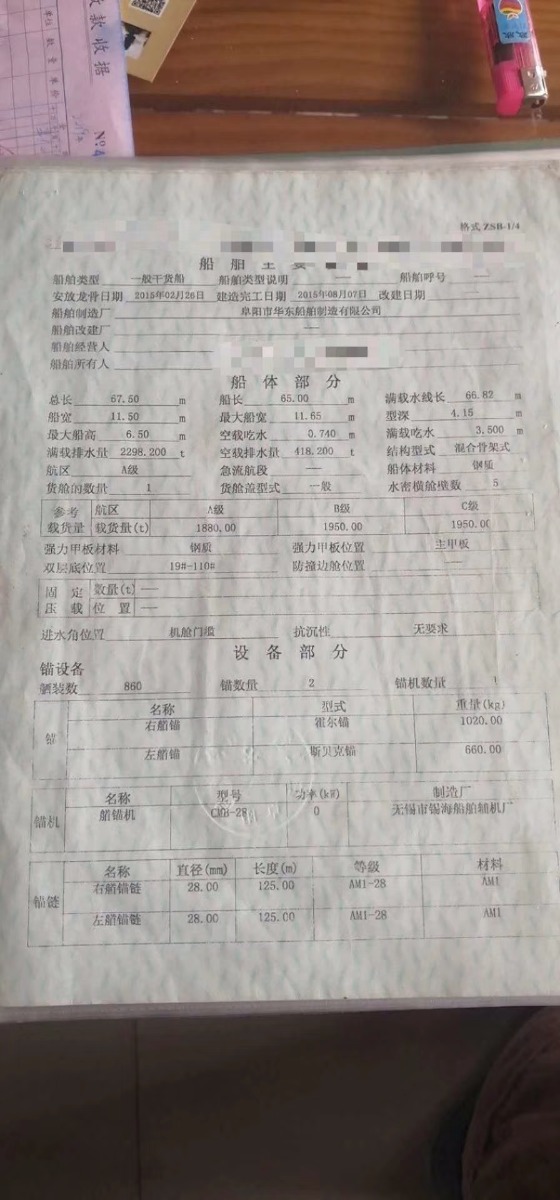 款收据
单位 数量 单价
No 4
格式 ZSB-1/4
船舶主要
船舶类型 一般干货船 船舶类型说明 —— 船舶呼号 ——
安放龙骨日期 2015年02月26日 建造完工日期 2015年08月07日 改建日期
船舶制造厂 阜阳市华东船舶制造有限公司
船舶改建厂 ——
船舶经营人
船舶所有人
船体部分
总长 67.50 m 船长 65.00 m 满载水线长 66.82 m
船宽 11.50 m 最大船宽 11.65 m 型深 4.15 m
最大船高 6.50 m 空载吃水 0.740 m 满载吃水 3.500 m
满载排水量 2298.200 t 空载排水量 418.200 t 结构型式 混合骨架式
航区 A级 急流航段 —— 船体材料 钢质
货舱的数量 1 货舱盖型式 一般 水密横舱壁数 5
参考载货量 航区 A级 B级 C级
载货量(t) 1880.00 1950.00 1950.00
强力甲板材料 钢质 强力甲板位置 主甲板
双层底位置 19#-110# 防撞边舱位置 ——
固定压载 数量(t) ——
位置 ——
进水角位置 机舱门槛 抗沉性 无要求
设备部分
锚设备
舾装数 860 锚数量 2 锚机数量 1
锚 名称 型式 重量(kg)
右艏锚 霍尔锚 1020.00
左艏锚 斯贝克锚 660.00
锚机 名称 型号 功率(kW) 制造厂
艏锚机 CMB-28 0 无锡市锡海船舶辅机厂
锚链 名称 直径(mm) 长度(m) 等级 材料
右艏锚链 28.00 125.00 AM1-28 AM1
左艏锚链 28.00 125.00 AM1-28 AM1